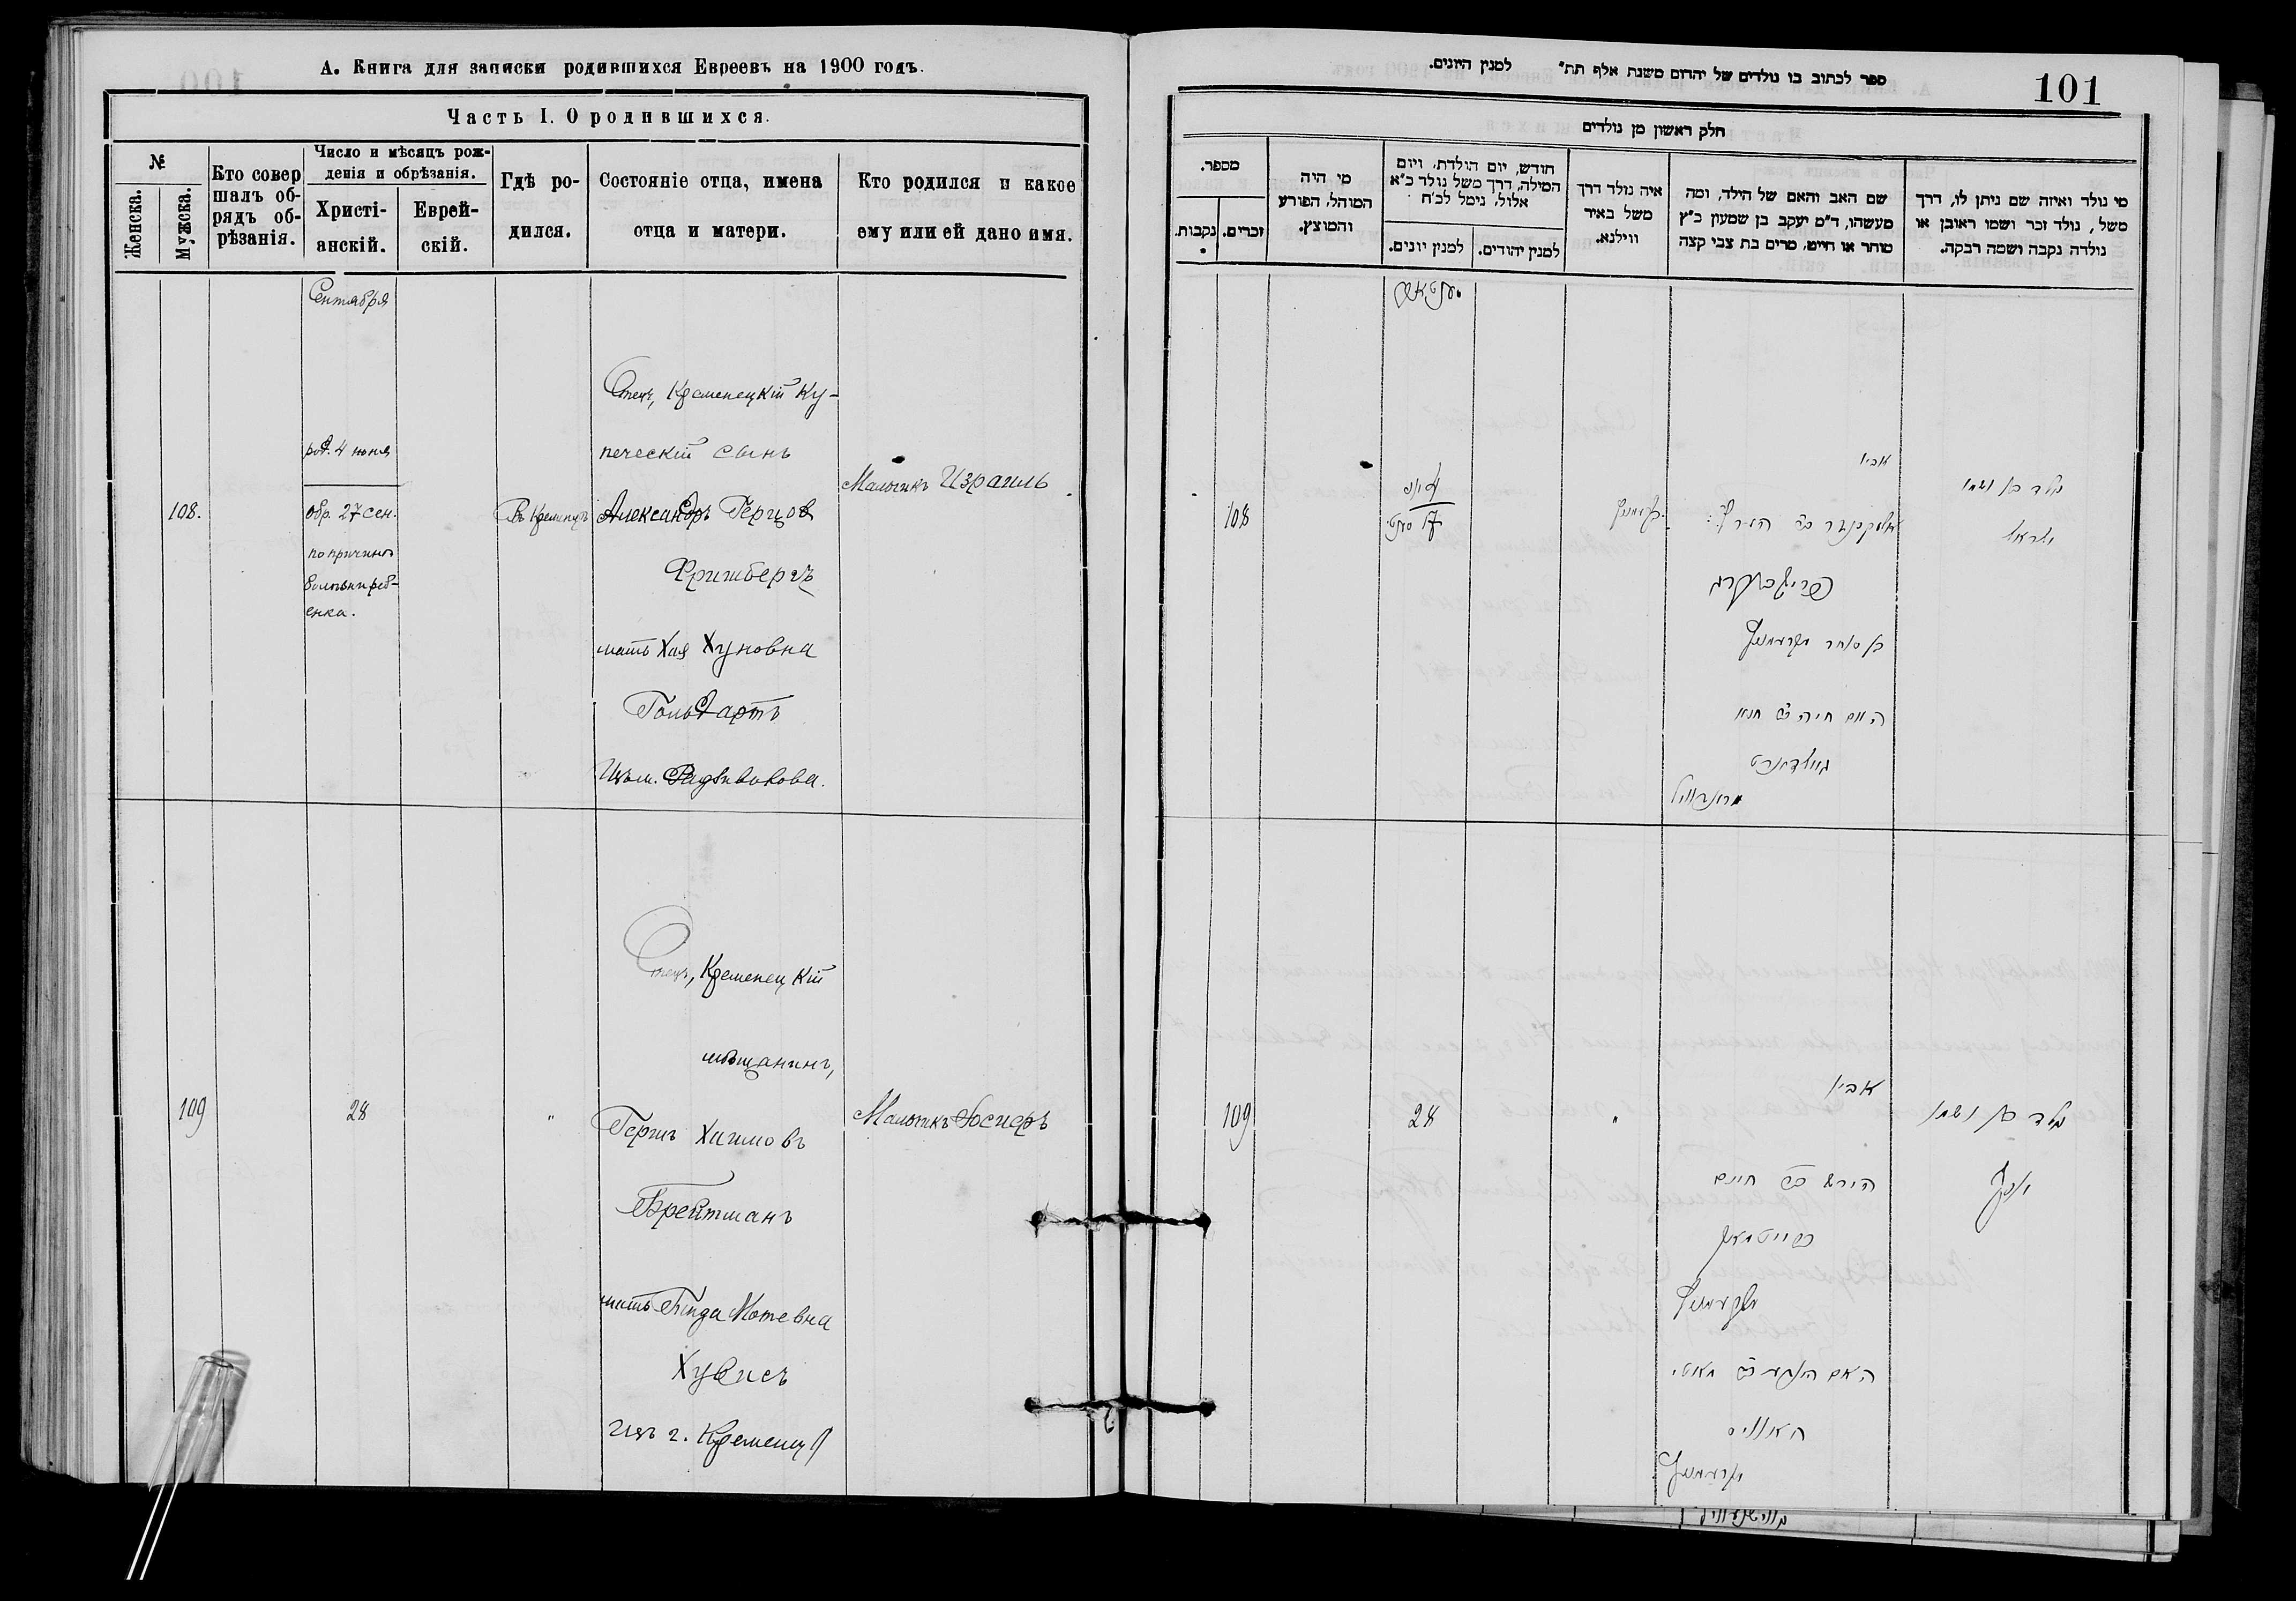 А. Книга для записки родившихся Евреевъ на 1900 годъ.
Часть I. О родившихся.
№
Женска.
Мужска.
Кто совер
шалъ об-
рядъ об-
рѣзанія.
Число и мѣсяцъ рож-
денія и обрѣзанія.
Христі-
анскій.
Еврей-
скій.
Гдѣ ро-
дился.
Состояніе отца, имена
отца и матери.
Кто родился и какое
ему или ей дано имя.
Сентября
108.
род. 4 июня
обр. 27 сен.
по причинѣ
болѣзни реб-
енка.
Въ Кременцѣ
Отецъ, Кременецкій Ку-
печескій сынъ
Александръ Герцов
Фришбергъ
мать Хая Хуновна
Гольдартъ
Изъ м. Радзивилова.
Мальчикъ Израиль
109
28
"
Отецъ, Кременецкій
мѣщанинъ,
Гершъ Хаимовъ
Бройтманъ
мать Гинда Мотевна
Хувисъ
изъ г. Кременца
Мальчикъ Іосифъ
ספר לכתוב בו נולדים של יהדום משנת אלף תת״ למנין היונים.
101
חלק ראשון מן נולדים
מספר.
נקבות.
זכרים.
מי היה
המוהל, הפורע
והמוצץ.
חודש, יום הולדת, ויום
המילה, דרך משל נולד כ״א
אלול, נימל לכ׳ח
למנין יונים.
למנין יהודים.
איה נולד דרך
משל באיר
ווילנא.
שם האב והאם של הילד, ומה
מעשהו, ד״מ יעקב בן שמעון כ״ץ
סוחר או חייט, מרים בת צבי קצה
מי נולד ואיזה שם ניתן לו, דרך
משל, נולד זכר ושמו ראובן או
נולדה נקבה ושמה רבקה.
108
4 יוני
27 סעפט׳
קרעמעניץ
אביו
אלעקסנדר ב״ר הירץ
פרישבערג
בן סוחר מקרעמעניץ
האם חיה ב״ר חנא
גאלדארט
נולד בן ושמו
ישראל
109
28
"
אביו
הירש ב״ר חיים
ברייטמאן
מקרעמעניץ
האם הינדע ב״ר מאטי
חאוויס
מקרעמעניץ
נולד בן ושמו
יוסף